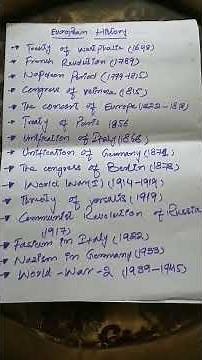 European History
→ Treaty of Westphalia (1648)
→ French Revolution (1789)
→ Napoleon Period (1799-1815)
→ Congress of Vienna (1815)
→ The consert of Europe
→ Treaty of Paris 1856
→ Unification of Italy
→ Unification of Germany (1871)
→ The congress of Berlin (1878)
→ World War (I) (1914-1918)
→ (1919)
→ Communist Revolution of Russia
(1917)
→ Fascism in Italy (1922)
→ Nazism in Germany (1933)
→ World-War-2 (1939-1945)